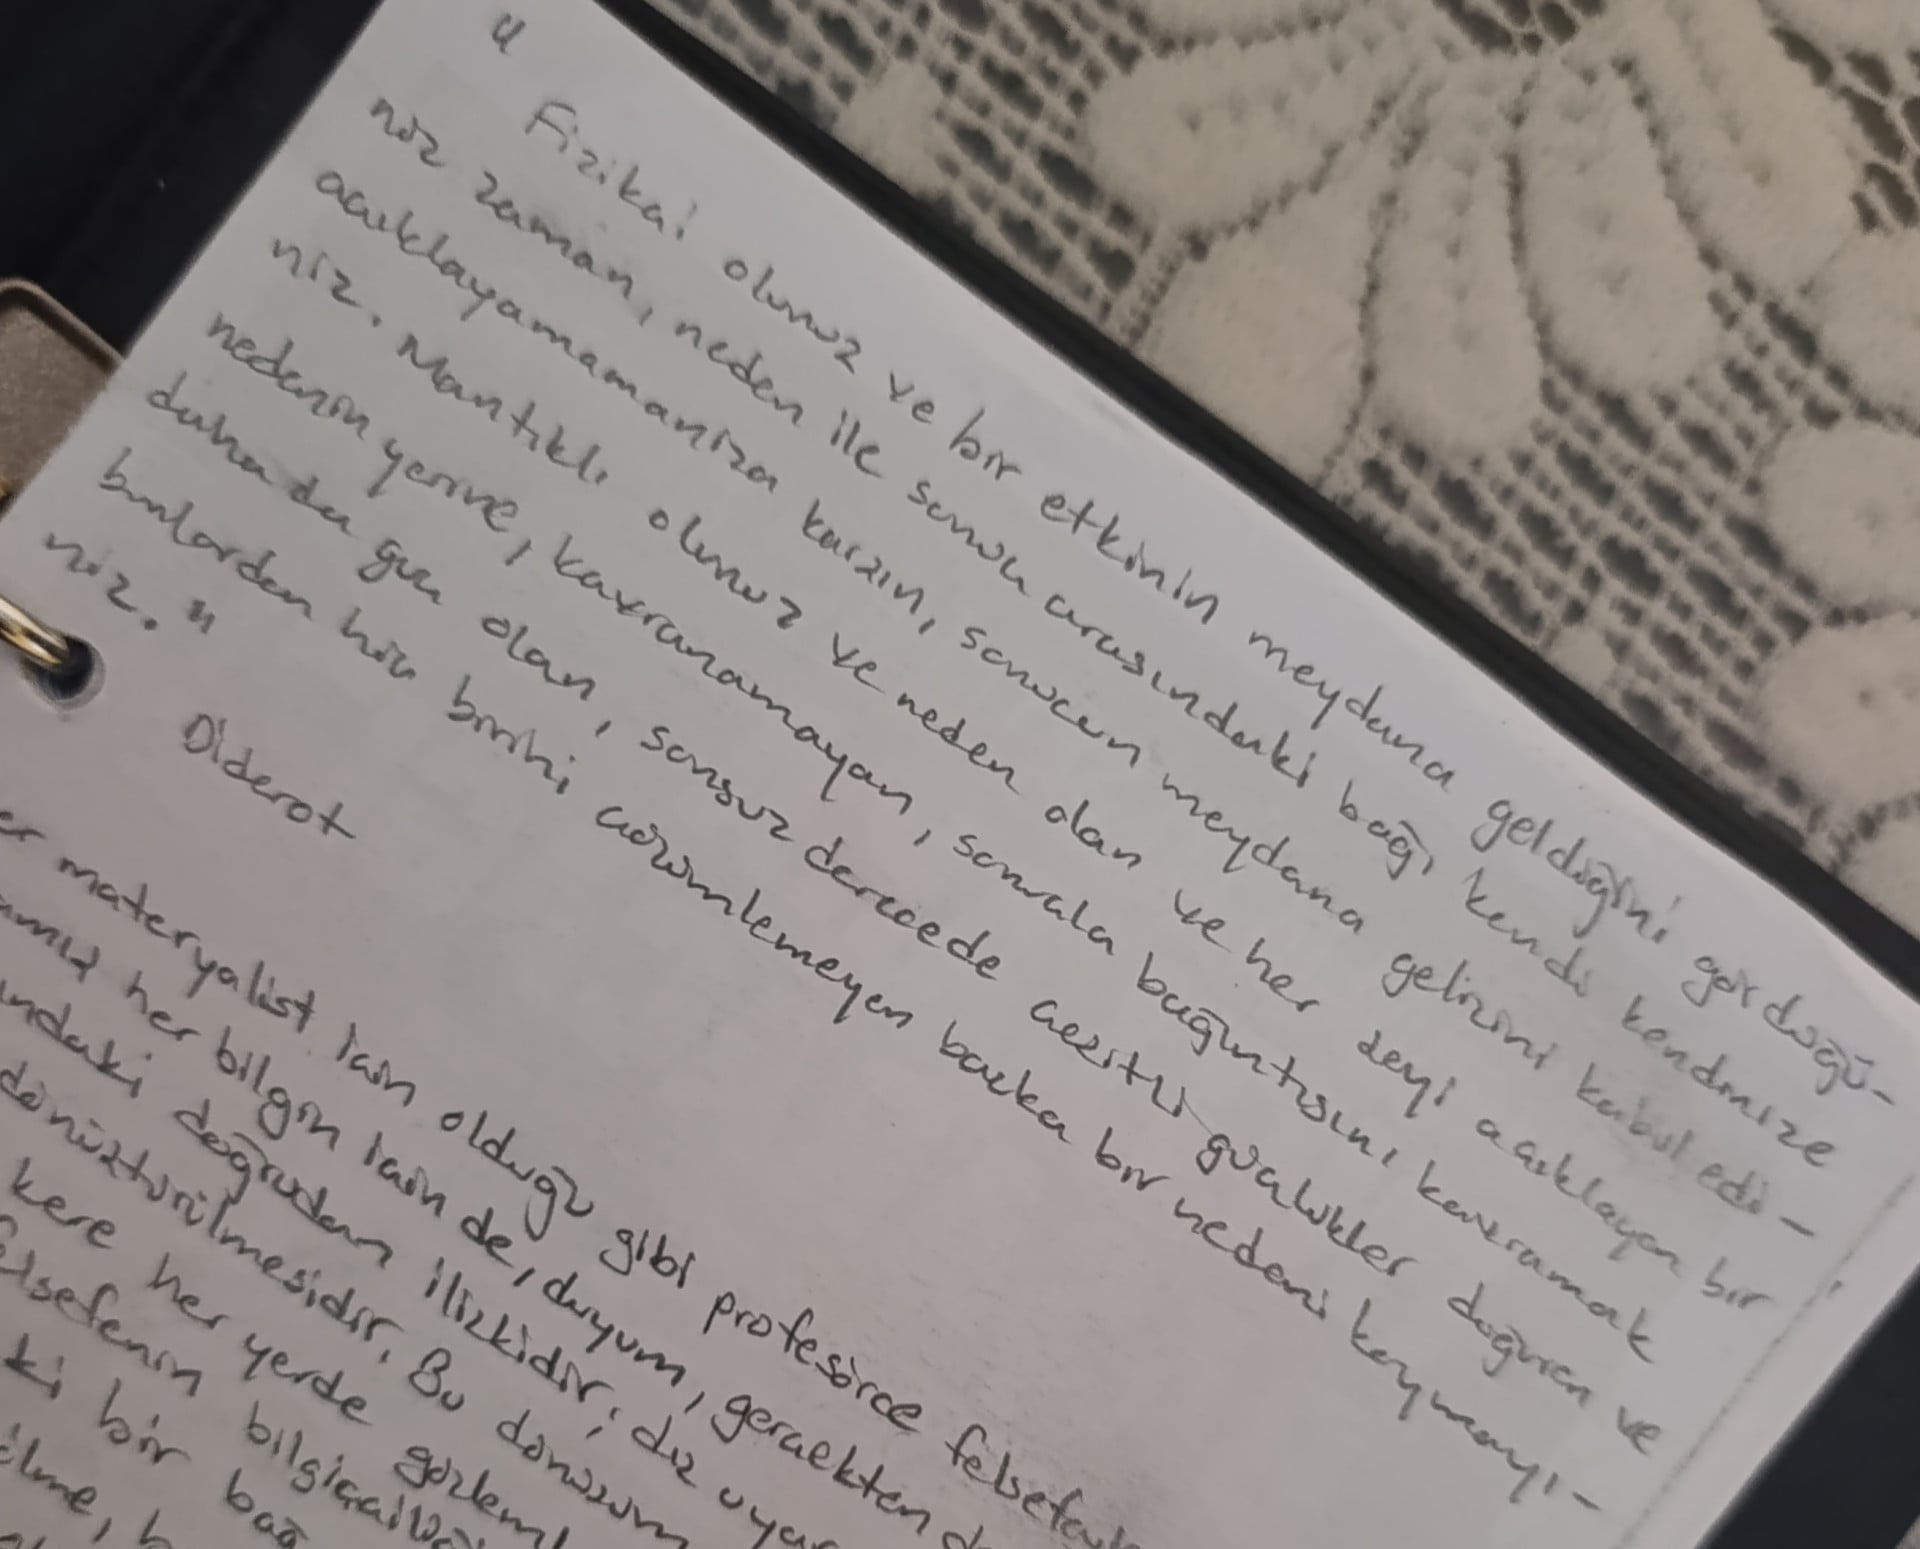 "
Fizikçi olunuz ve bir etkinin meydana geldiğini gördüğü-
nüz zaman, neden ile sonuç arasındaki bağı kendi kendinize
açıklayamamanıza karşın, sonucun meydana gelişini kabul edi-
niz. Mantıklı olunuz ve neden olan ve her şeyi açıklayan bir
nedenin yerine, kavranamayan, sonuçla bağıntısını kavramak
daha da güç olan, sonsuz derecede çeşitli güçlükler doğuran ve
bunlardan hiç birini çözümlemeyen başka bir nedeni koymayı-
nız."
Diderot
materyalist için olduğu gibi profesörce
her bilgin için de, duyum, gerçekten
doğrudan ilişkidir; dış
dönüştürülmesidir. Bu dönüşüm
kere her yerde
ki bir